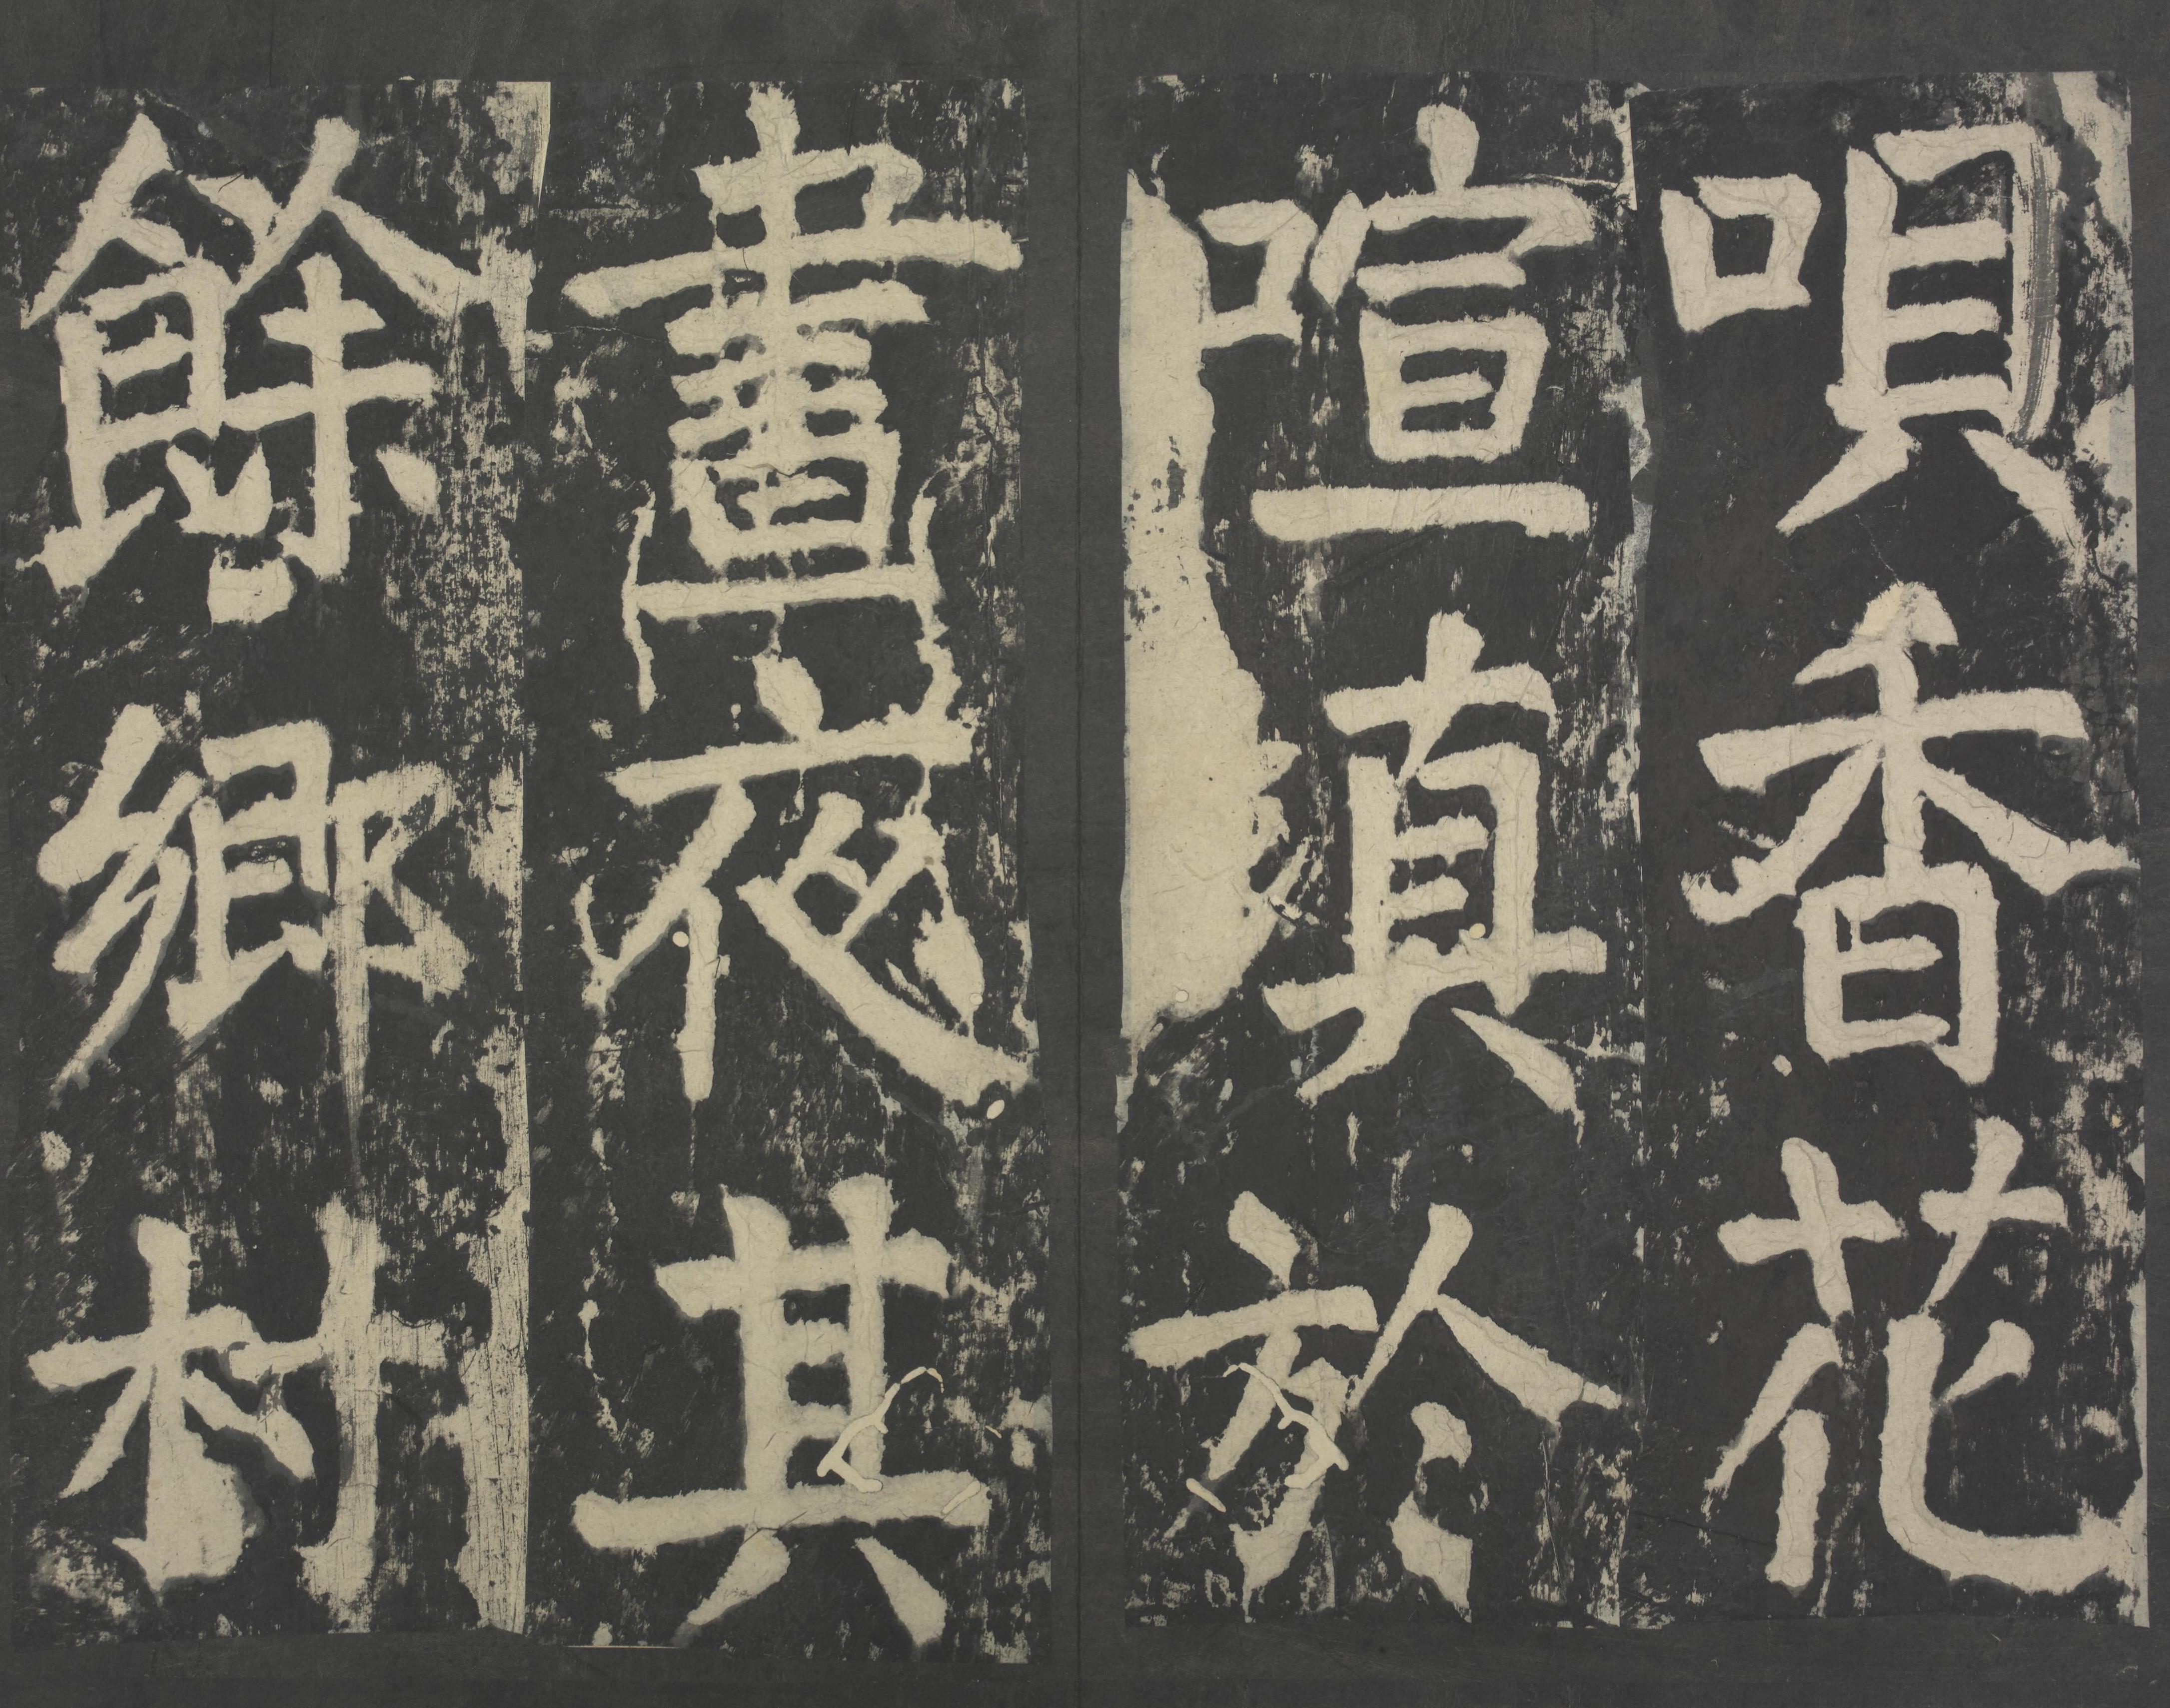 唄香花
喧填於
晝夜其
餘鄉村